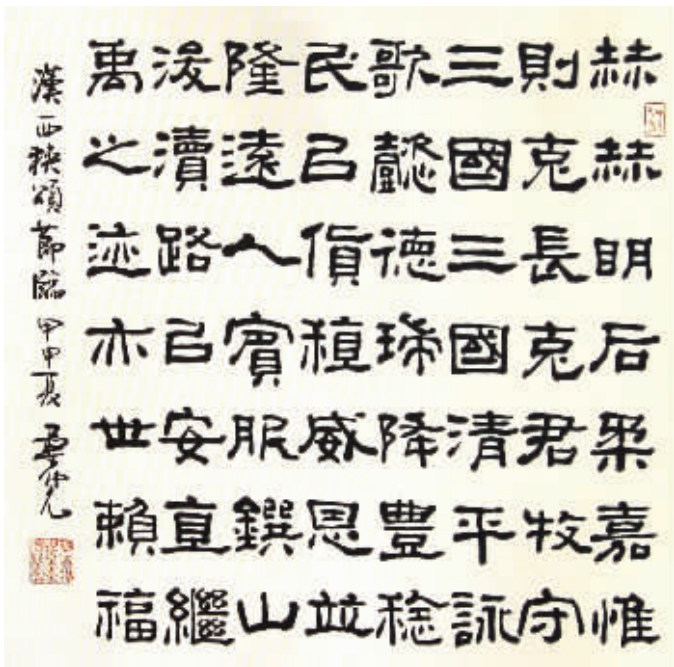 赫赫明后柔嘉惟
則克長克君牧守
三國三國清平詠
歌懿德瑞降豐稔
民㠯貨稙威恩竝
隆遠人賓服鐉山
浚瀆路㠯安直繼
禹之迹亦世賴福
漢西狹頌節臨甲申夏